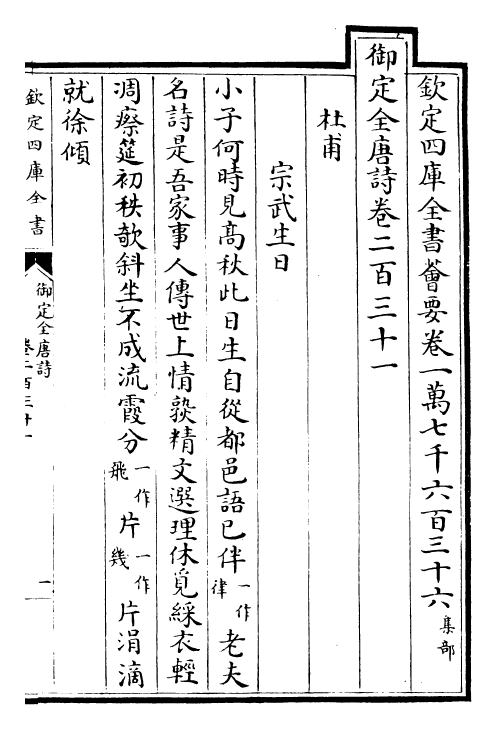 欽定四庫全書薈要卷一萬七千六百三十六集部
御定全唐詩卷二百三十一
杜甫
宗武生日
小子何時見高秋此日生自從都邑語已伴一作律老夫
名詩是吾家事人傳世上情熟精文選理休覓綵衣輕
凋瘵筵初秩欹斜坐不成流霞分一作飛片一作幾片涓滴
就徐傾
欽定四庫全書
御定全唐詩
卷二百三十一
一